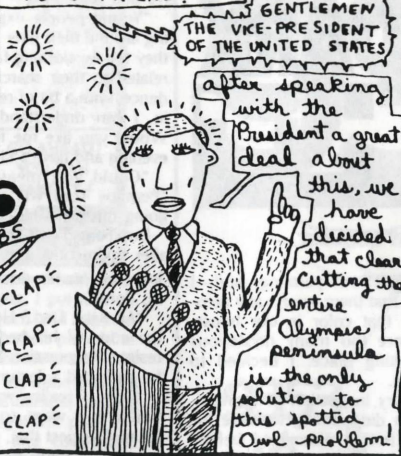 GENTLEMEN
THE VICE-PRESIDENT
OF THE UNITED STATES
after speaking
with the
President a great
deal about
this, we
have
decided
that clear
cutting the
entire
Olympic
peninsula
is the only
solution to
this spotted
Owl problem!
BS
CLAP
CLAP
CLAP
CLAP